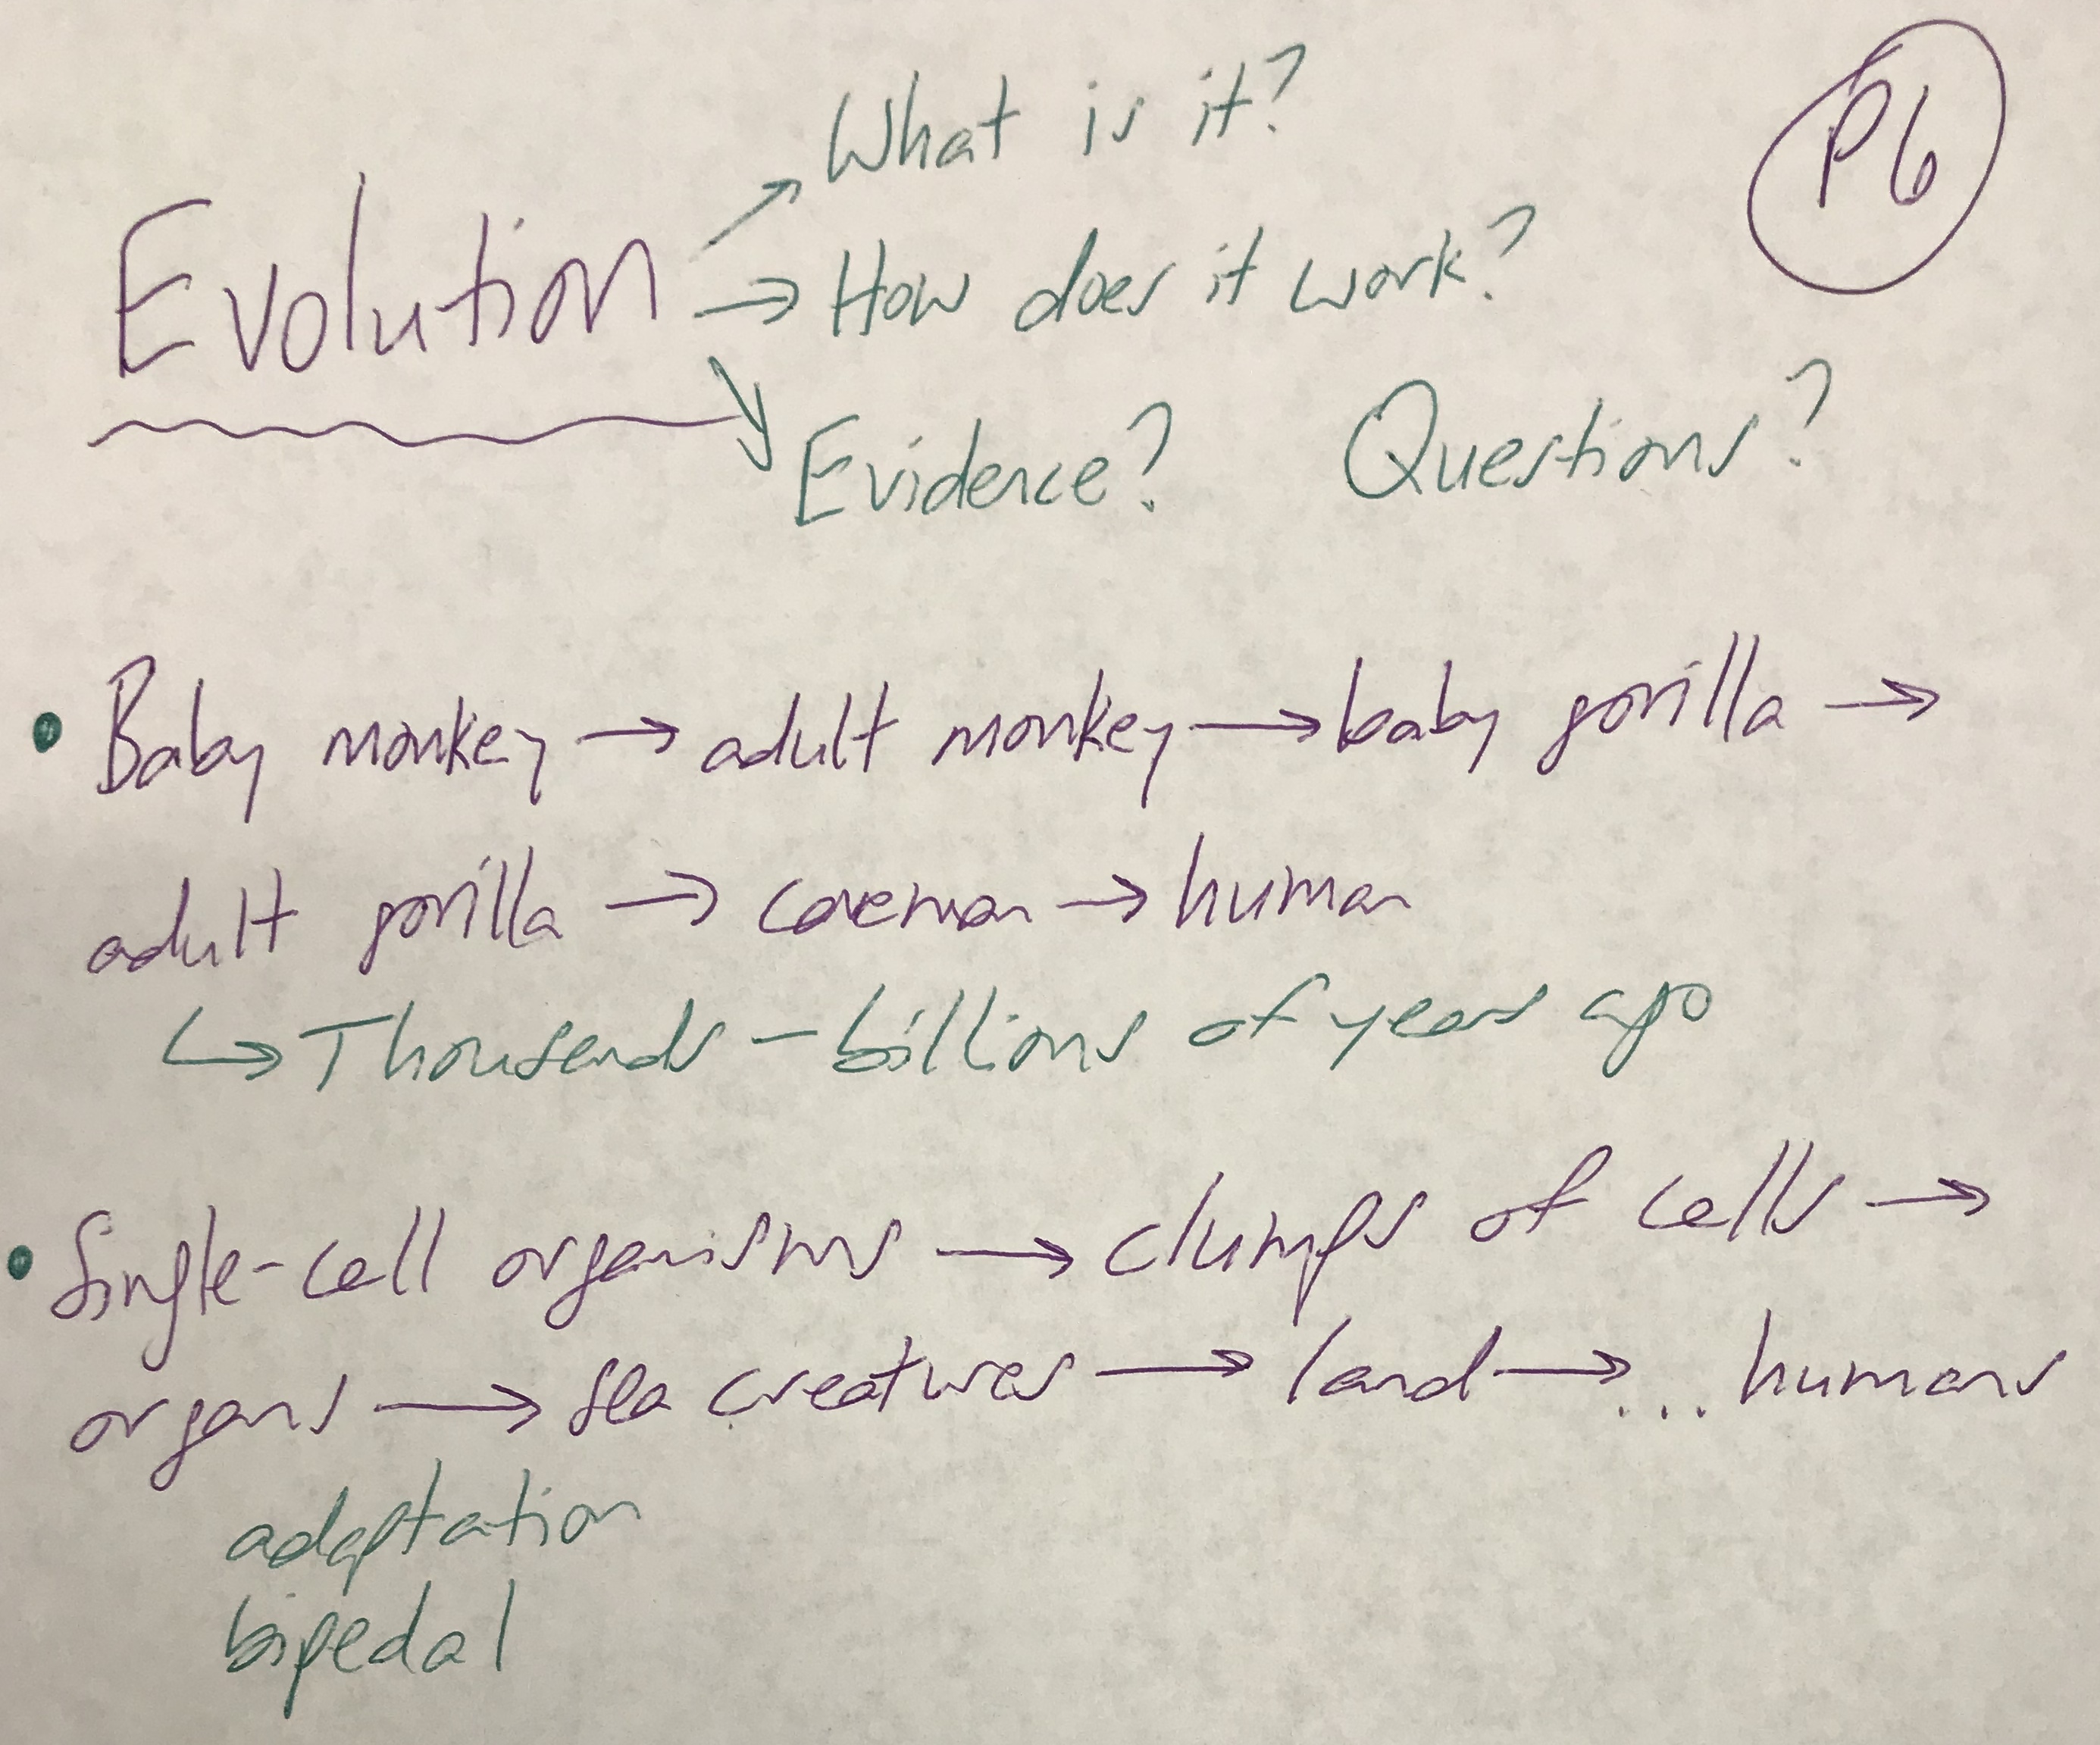 What is it?
P6
Evolution → How does it work?
Evidence? Questions?
• Baby monkey → adult monkey → baby gorilla →
adult gorilla → caveman → human
↳ Thousands - billions of years ago
• Single-cell organisms → clumps of cells →
organs → sea creatures → land → ... humans
adaptation
bipedal